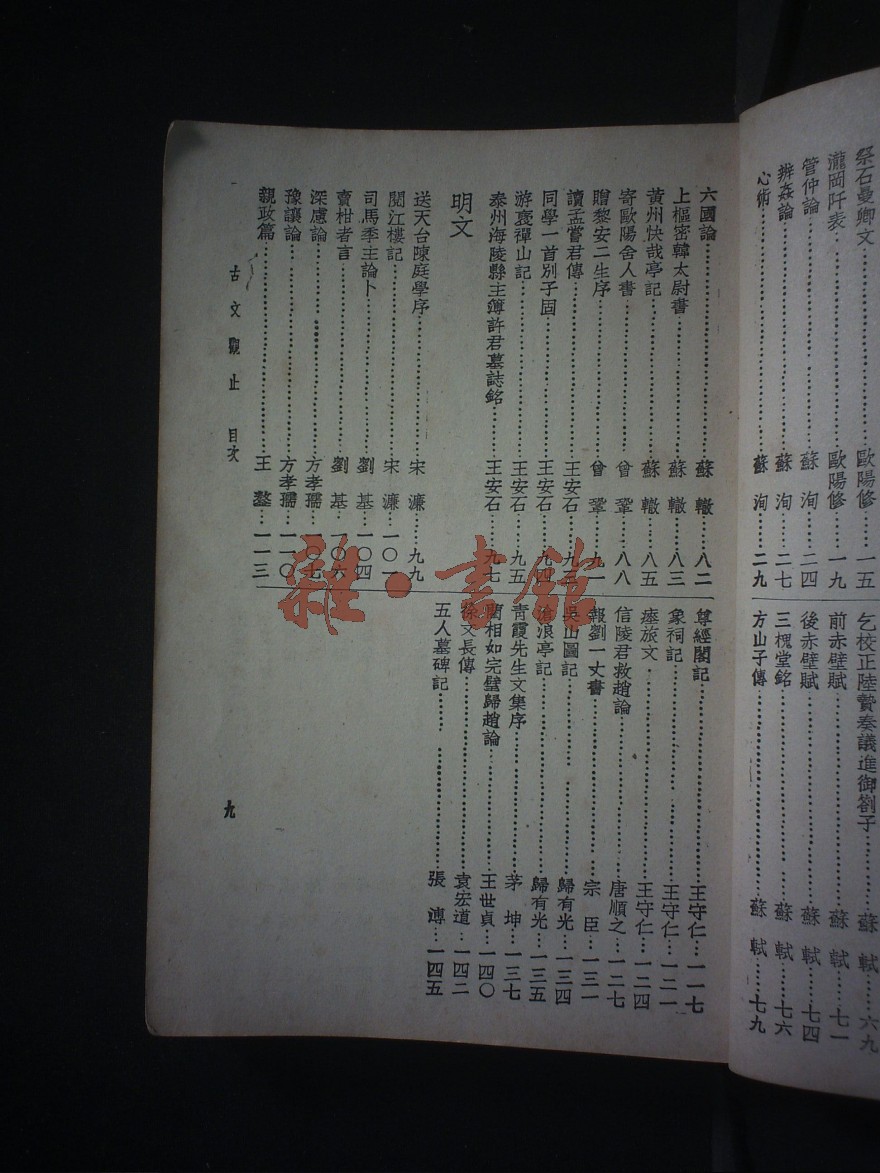 祭石曼卿文……歐陽修……一五
瀧岡阡表……歐陽修……一九
管仲論……蘇洵……二四
辨姦論……蘇洵……二七
心術……蘇洵……二九
乞校正陸贄奏議進御劄子……蘇軾……六九
前赤壁賦……蘇軾……七一
後赤壁賦……蘇軾……七四
三槐堂銘……蘇軾……七六
方山子傳……蘇軾……七九
六國論……蘇轍……八二
上樞密韓太尉書……蘇轍……八三
黃州快哉亭記……蘇轍……八五
寄歐陽舍人書……曾鞏……八八
贈黎安二生序……曾鞏……九一
讀孟嘗君傳……王安石……九三
同學一首別子固……王安石……九四
游褒禪山記……王安石……九五
泰州海陵縣主簿許君墓誌銘……王安石……九七
明文
送天台陳庭學序……宋濂……九九
閱江樓記……宋濂……一〇一
司馬季主論卜……劉基……一〇四
賣柑者言……劉基……一〇六
深慮論……方孝孺……一〇七
豫讓論……方孝孺……一一〇
親政篇……王鏊……一一三
尊經閣記……王守仁……一一七
象祠記……王守仁……一二一
瘞旅文……王守仁……一二四
信陵君救趙論……唐順之……一二七
報劉一丈書……宗臣……一三一
吳山圖記……歸有光……一三四
滄浪亭記……歸有光……一三五
靑霞先生文集序……茅坤……一三七
藺相如完璧歸趙論……王世貞……一四〇
徐文長傳……袁宏道……一四二
五人墓碑記……張溥……一四五
古文觀止 目次
九
雜·書館